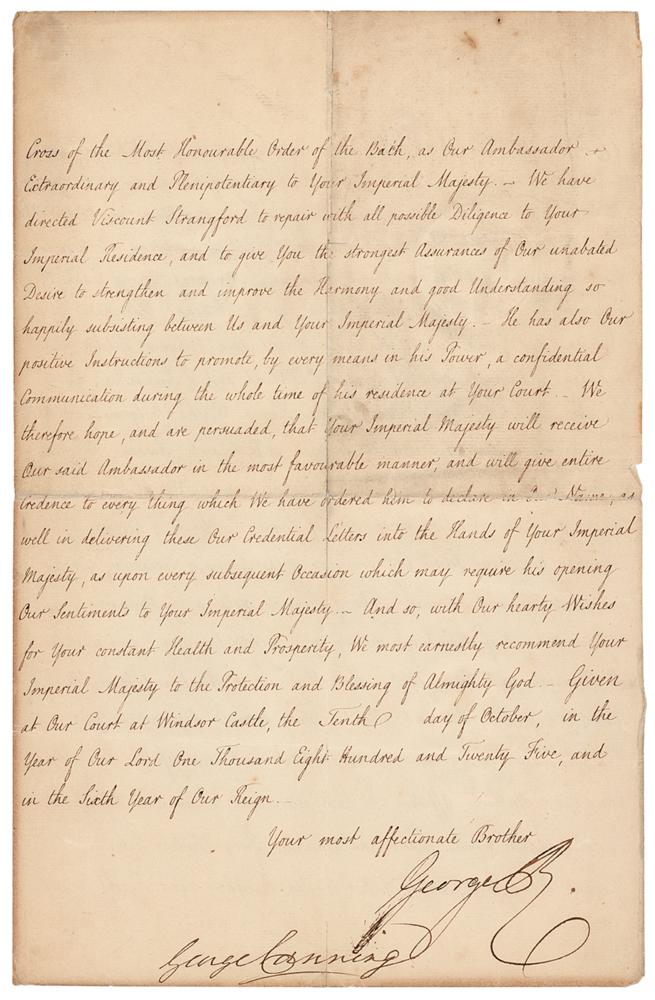 Cross of the Most Honourable Order of the Bath, as Our Ambassador
Extraordinary and Plenipotentiary to Your Imperial Majesty. – We have
directed Viscount Strangford to repair with all possible Diligence to Your
Imperial Residence, and to give You the strongest Assurances of Our unabated
Desire to strengthen and improve the Harmony and good Understanding so
happily subsisting between Us and Your Imperial Majesty. – He has also Our
positive Instructions to promote, by every means in his Power, a confidential
Communication during the whole time of his residence at Your Court. – We
therefore hope, and are persuaded, that Your Imperial Majesty will receive
Our said Ambassador in the most favourable manner, and will give entire
Credence to every thing which We have ordered him to declare in Our Name, as
well in delivering these Our Credential Letters into the Hands of Your Imperial
Majesty, as upon every subsequent Occasion which may require his opening
Our Sentiments to Your Imperial Majesty. – And so, with Our hearty Wishes
for Your constant Health and Prosperity, We most earnestly recommend Your
Imperial Majesty to the Protection and Blessing of Almighty God. – Given
at Our Court at Windsor Castle, the Tenth day of October, in the
Year of Our Lord One Thousand Eight Hundred and Twenty Five, and
in the Sixth Year of Our Reign. –
Your most affectionate Brother
George R.
George Canning